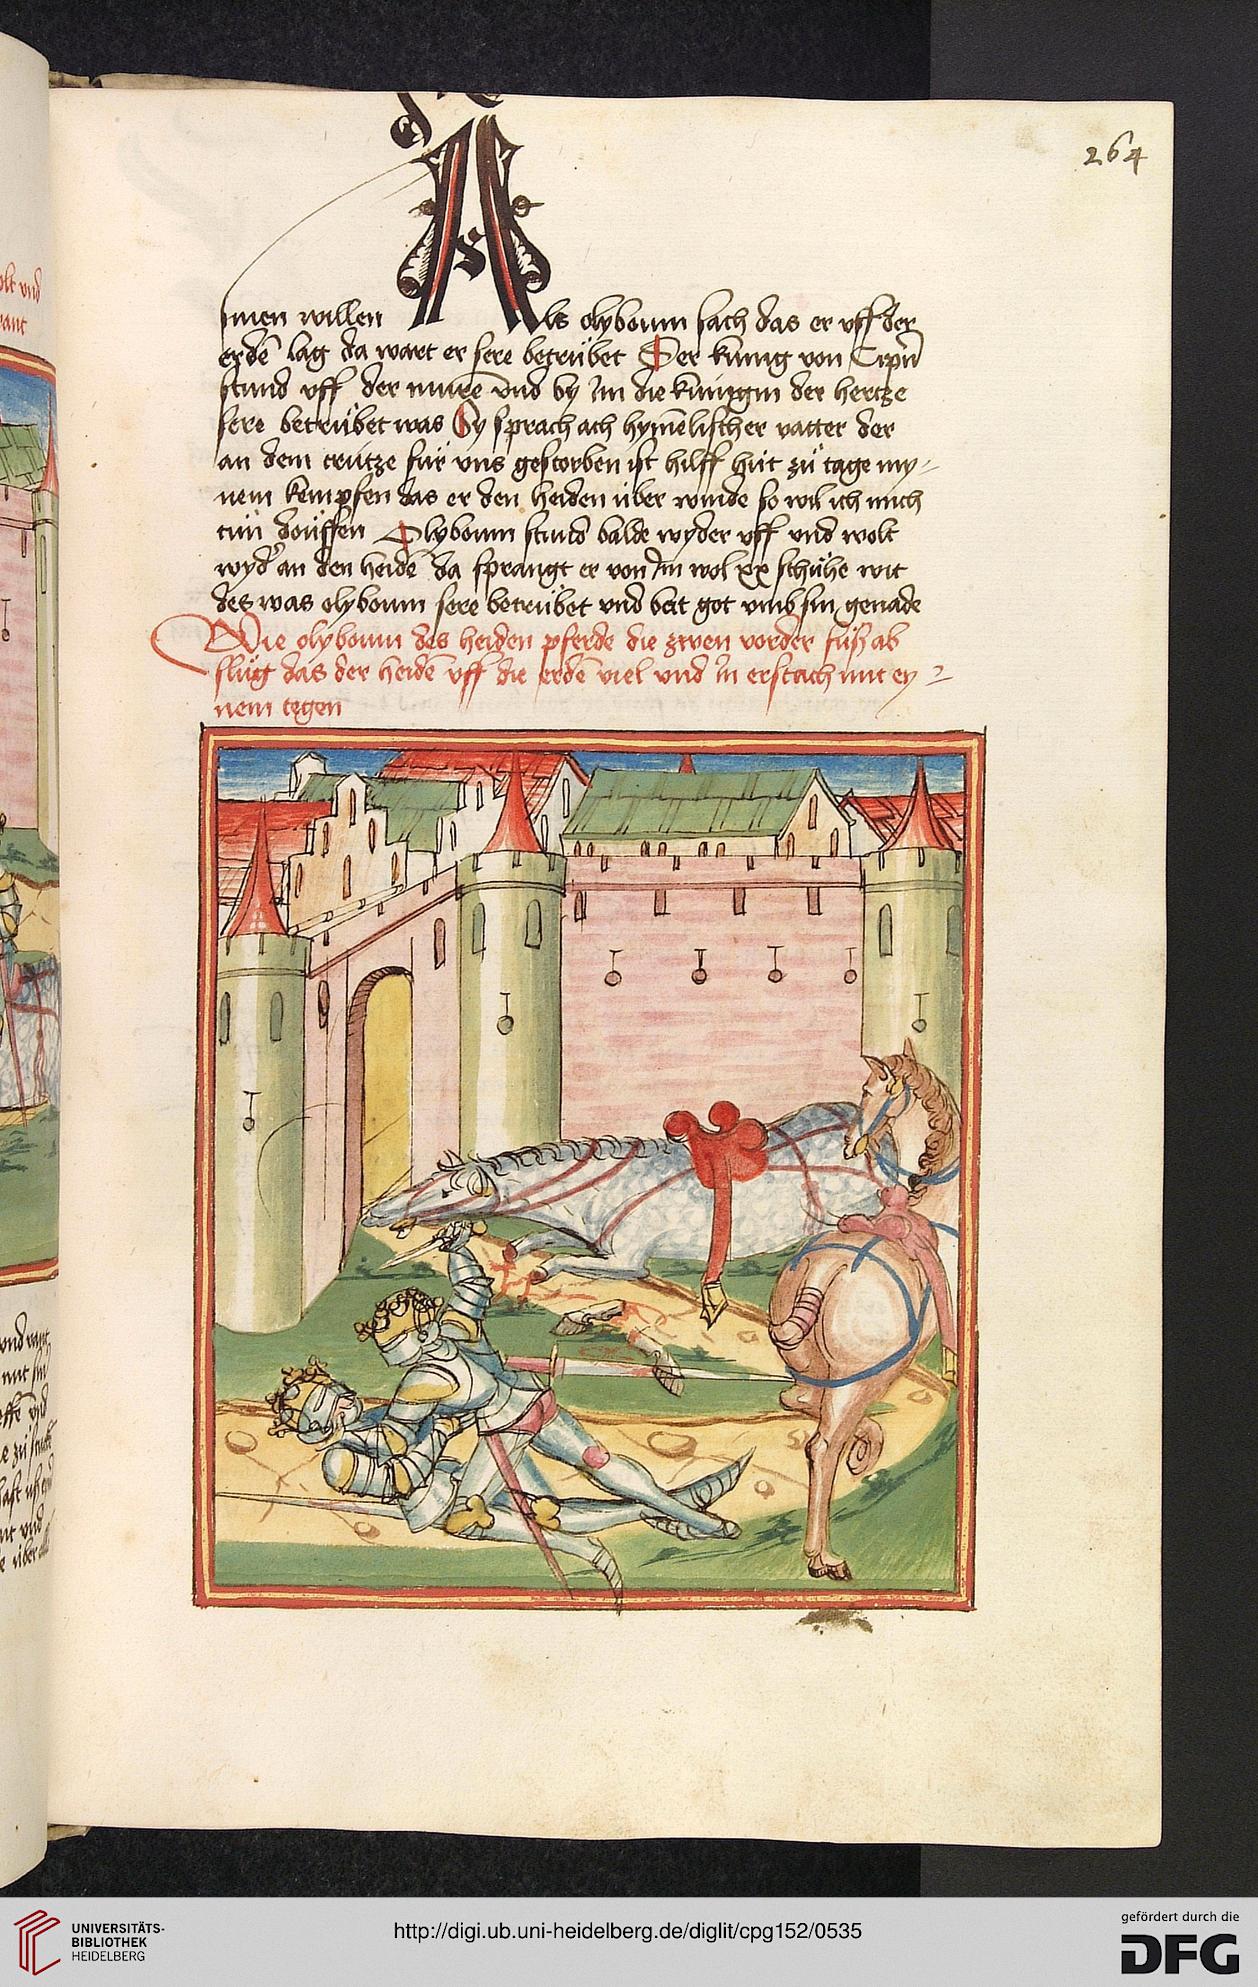 264
sinen willen Als olyboum sach das er vff der
erdē lag da wart er sere betrübet Der künig von Cipn̄
stund vff der murē vnd by im die künigin der hertze
sere betrübet was Sy sprach ach hym̄elischer vatter der
an dem crütze für vns gestorben ist hilff hüt zü tage my-
nem kempfen das er den heiden über winde so wil ich mich
tün douffen Olyboum stund balde wyder vff vnd wolt
wyd' an den heidē da sprangt er von im wol xx schühe wit
des was olyboum sere betrübet vnd bat got vmb sin genade
Wie olyboum des heiden pferde die zwen vorder füß ab
slüg das der heidē vff die erdē viel vnd in erstach mit ey-
nem tegen
olt vnd
vnd
vnd
über
UNIVERSITÄTS-
BIBLIOTHEK
HEIDELBERG
http://digi.ub.uni-heidelberg.de/diglit/cpg152/0535
gefördert durch die
DFG